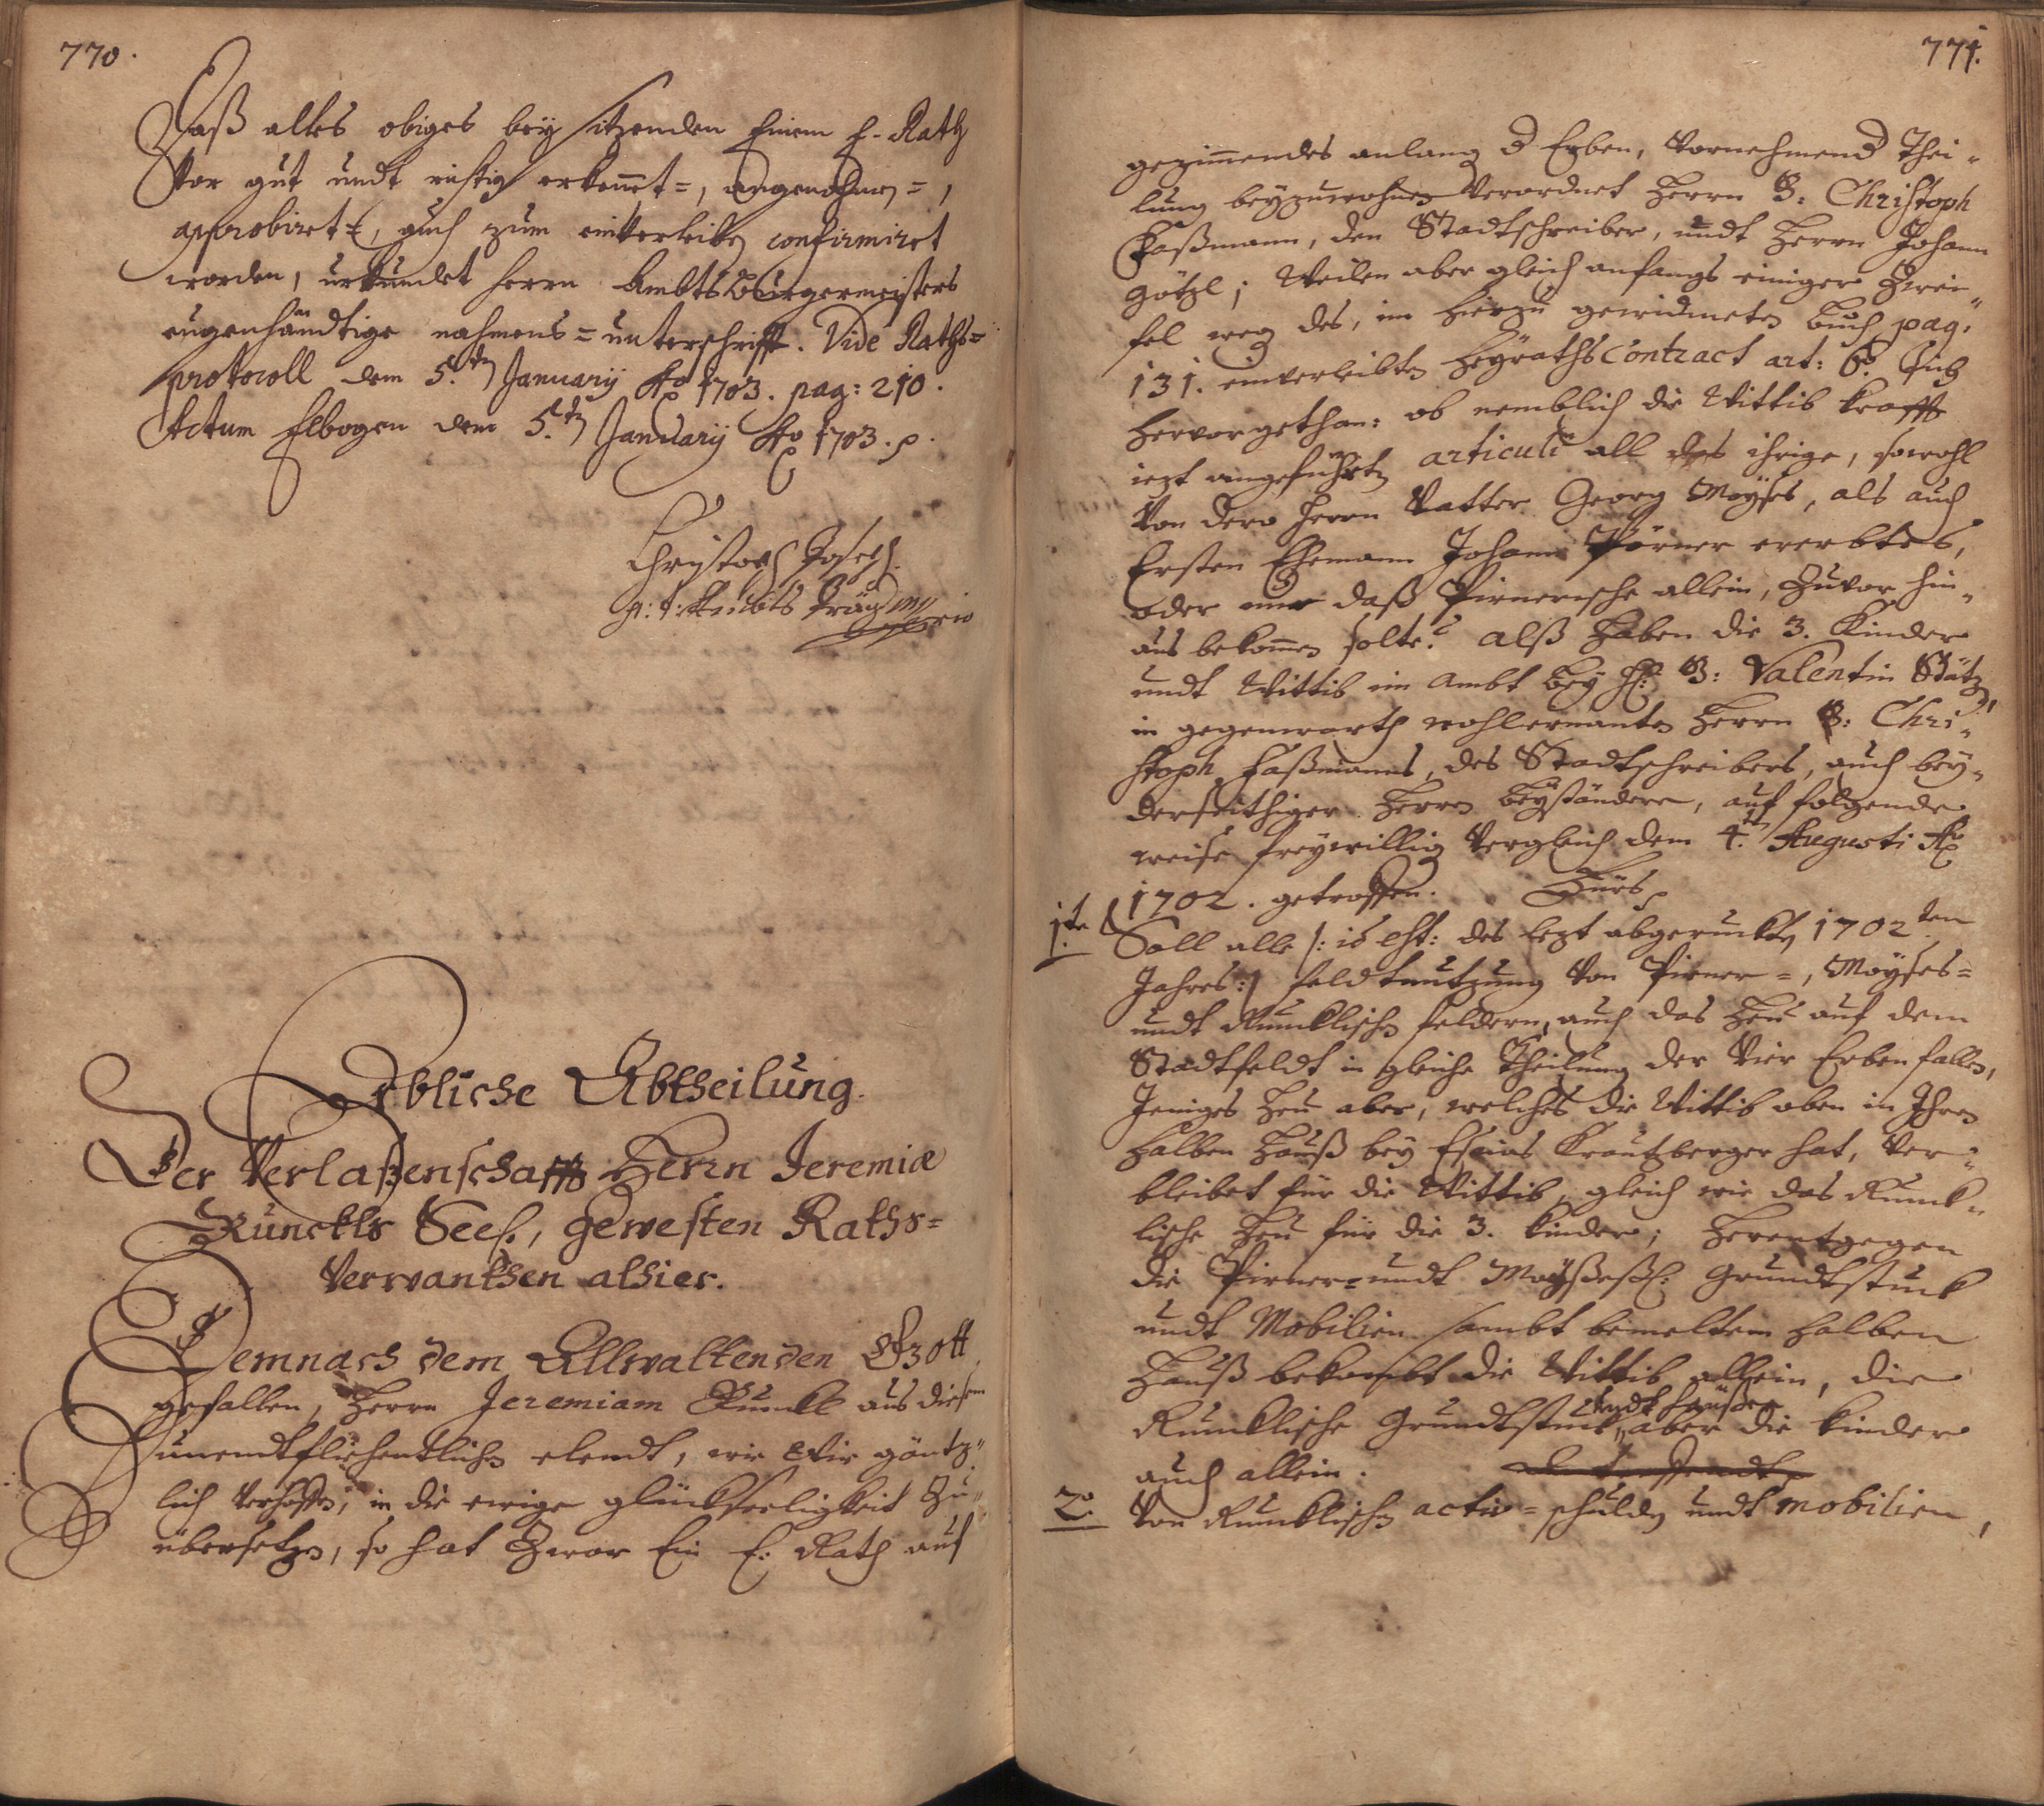 770.
Daß alles obiges bey sitzenden Einem E. Rath
vor gut undt richtig erkennet=, angenohmen=,
approbiret=, auch zum einverleiben confirmiret
worden, urkundet Herrn Ambts Burgermeisters
eugenhändtige nahmens=unterschrifft. Vide Raths=
protocoll dem 5.ten January Ao 1703. pag: 210.
Actum Elbogen dem 5.ten January Ao 1703. p.
Christoph Joseph
p: t: Ambts mppria
Erbliche Abtheilung.
Der Verlaßenschafft Herrn Jeremiæ
Runckls Seel., gewesten Raths=
Verwanthen alhier.
Demnach dem Allwaltenden Gott
gefallen, Herrn Jeremiam Runckl aus diesem
elendt, wie wir gäntz"
lich verhoffen, in die ewige glückseeligkeit zu"
übersetzen, so hat zwar Ein E. Rath auf
771.
geziemendes anlang d Erben, vornehmend Thei"
lung beyzuwohnen verordnet Herrn B: Christoph
Faßmann, den Stadtschreiber, undt Herrn Johann
Götzl; Weilen aber gleich anfangs einiger Zwei"
fel weg des, im hierzu gewidmeten Buch pag.
131. einverleibten Heyraths Contract art: 6to sich
hervorgethan: ob nemblich die Wittib krafft
iezt angeführten articuli all das ihrige, sowohl
von dero Herrn Vatter Georg Moyses, als auch
Ersten Ehemann Johann Pörner ererbtes,
oder nur daß Pirnerische allein, zuvor hin"
aus bekommen solte? alß haben die 3. Kinder
undt Wittib im Ambt bey H: B: Valentin Stütz,
in gegenwarth wohlernanten Herrn B: Chri"
stoph Faßmanns, des Stadtschreibers, auch bey"
derseithiger Herren Beyständere, auf folgende
weise freywillig Vergleich dem 4.ten Augusti Ao
1702. getroffen.
1.te Soll alle /: is est: des lezt abgeruckten 1702ten
Jahres:/ feldtnutzung von Pirner=, Moyses=
undt Runcklischen feldern, auch das Heu auf dem
Stadtfeldt in gleiche Theilung der Vier Erben fallen,
Jeniges Heu aber, welches die Wittib oben in Ihren
halben Hauß bey Esaias Krautzberger hat, ver"
bleibet für die Wittib, gleich wie das Runck"
lische Heu für die 3. Kinder; Herentgegen
die Pirner= undt Moyßeß: Grundtstuck
undt Mobilien sambt bemeltem halben
Hauß bekombt die Wittib allein, die
undt Häußer
Runcklische Grundtstuck, aber die Kinder
auch allein.
2. Von Runcklischen activ=schulden undt mobilien,